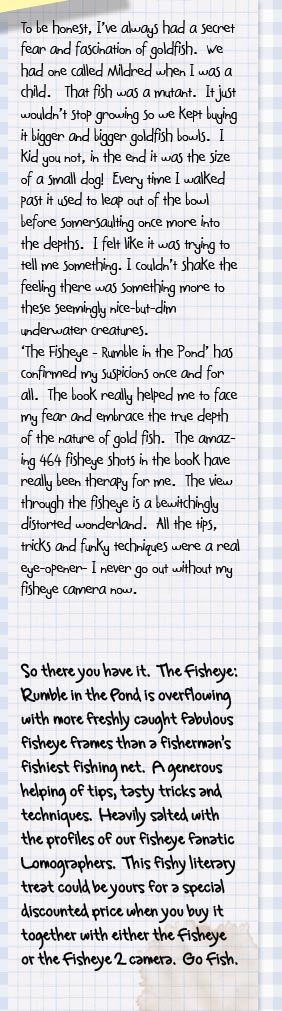 To be honest, I've always had a secret
fear and fascination of goldfish. We
had one called Mildred when I was a
child. That fish was a mutant. It just
wouldn't stop growing so we kept buying
it bigger and bigger goldfish bowls. I
kid you not, in the end it was the size
of a small dog! Every time I walked
past it used to leap out of the bowl
before somersaulting once more into
the depths. I felt like it was trying to
tell me something. I couldn't shake the
feeling there was something more to
these seemingly nice-but-dim
underwater creatures.
'The Fisheye - Rumble in the Pond' has
confirmed my suspicions once and for
all. The book really helped me to face
my fear and embrace the true depth
of the nature of gold fish. The amaz-
ing 464 fisheye shots in the book have
really been therapy for me. The view
through the fisheye is a bewitchingly
distorted wonderland. All the tips,
tricks and funky techniques were a real
eye-opener- I never go out without my
fisheye camera now.
So there you have it. The Fisheye:
Rumble in the Pond is overflowing
with more freshly caught fabulous
fisheye frames than a fisherman's
fishiest fishing net. A generous
helping of tips, tasty tricks and
techniques. Heavily salted with
the profiles of our fisheye fanatic
Lomographers. This fishy literary
treat could be yours for a special
discounted price when you buy it
together with either the Fisheye
or the Fisheye 2 camera. Go Fish.